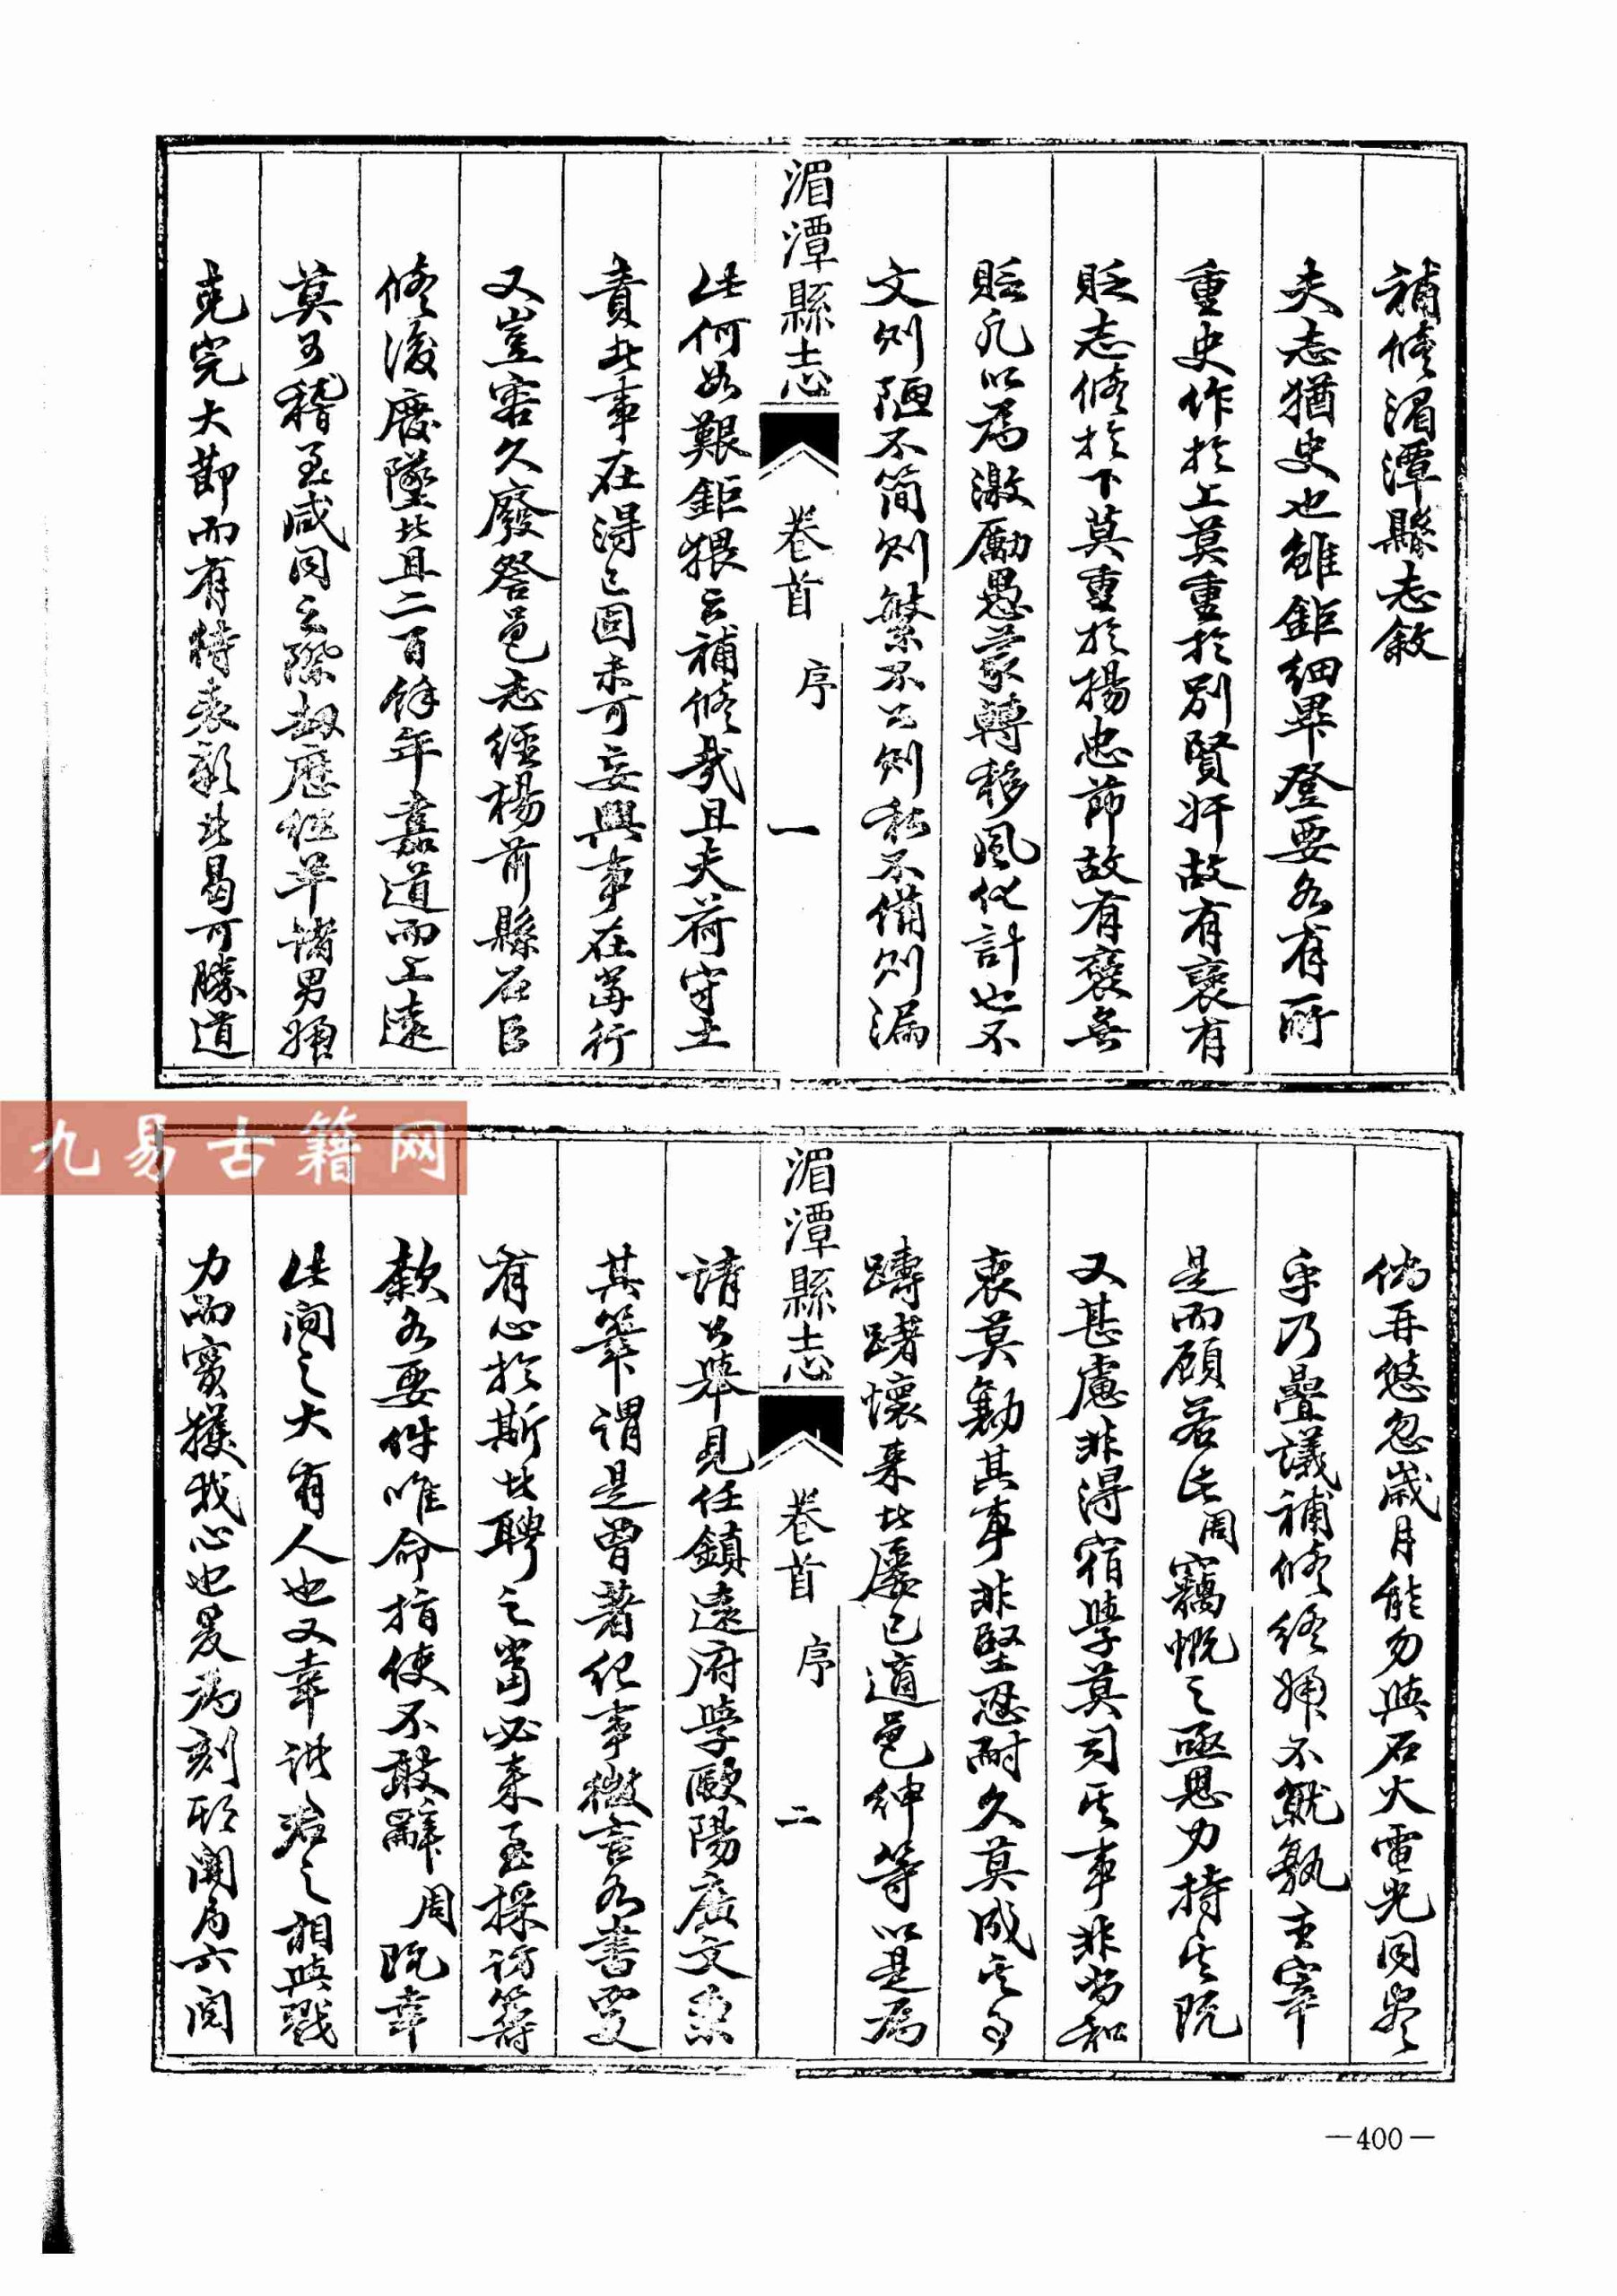 補修湄潭縣志敘
夫志猶史也雖鉅細畢登要各有所
重史作於上莫重於別賢奸故有褒有
貶志修於下莫重於揚忠節故有褒無
貶凡以為激勵愚蒙轉移風化計也不
文則陋不簡則繁不公則私不備則漏
湄潭縣志
卷首
序
一
此何如艱鉅猥云補修哉且夫荷守土
責者事在得已固未可妄興事在當行
又豈容久廢答邑志經楊前縣
修後廢墜者且二百餘年嘉道而上遠
莫可稽至咸同之際劫應紅羊諸男婦
克完大節而有待表彰者曷可勝道
倘再悠忽歲月能勿與石火電光同盡
乎乃疊議補修終歸不就孰主宰
是而顧若此周竊慨之亟思力持之既
又甚慮非得宿學莫司其事非尚和
衷莫勷其事非堅忍耐久莫成其事
躊躇懷來者屢已適邑紳等以是為
湄潭縣志
卷首
序
二
請公舉見任鎮遠府學歐陽廣文秉
其筆謂是曾著紀事微言各書更
有心於斯者聘之當必來至採訪籌
款各要件唯命指使不敢辭周既幸
此間之大有人也又幸諸君之相與戮
力而實獲我心也爰為刻期開局六閱
九易古籍网
—400—